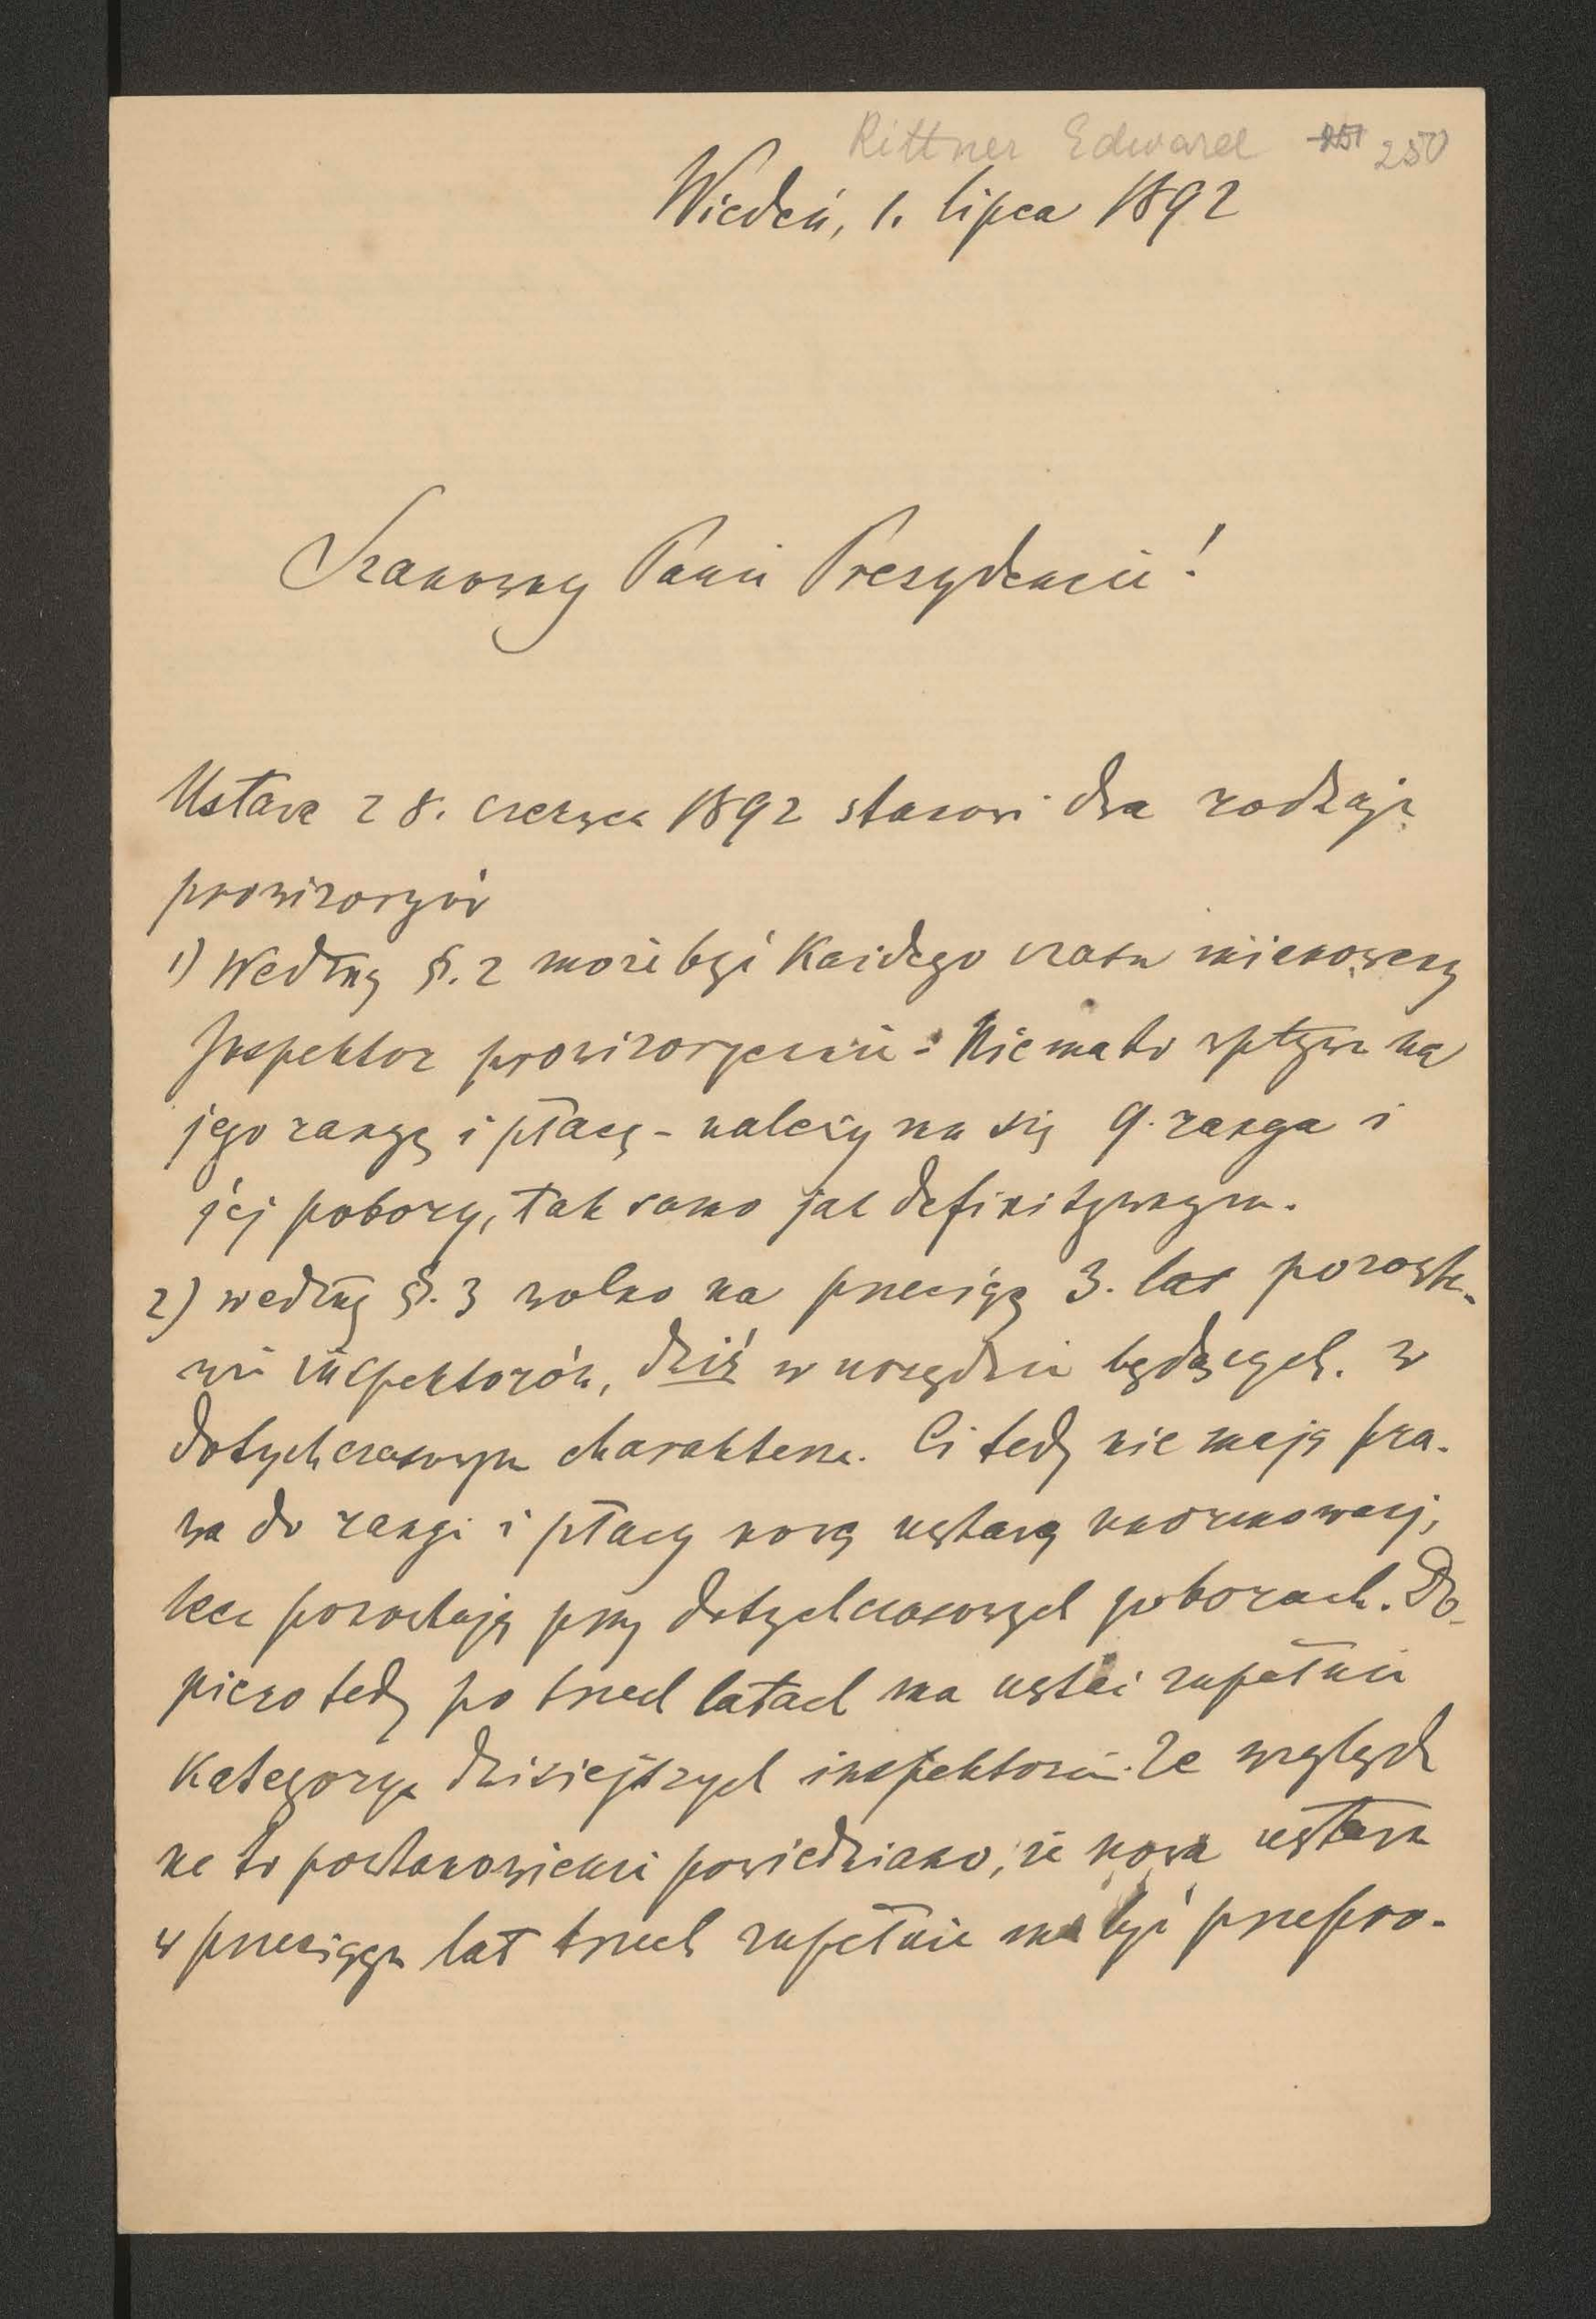 Rittner Edward 251 250
Wiedeń, 1. lipca 1892
Szanowny Panie Prezydencie!
Ustawa z 8. czerwca 1892 stanowi dwa rodzaje
prowizoryów
1) Według §. 2 może być każdego czasu mianowany
Inspektor prowizorycznie. Nie ma to wpływu na
jego rangę i płacę - należy mu się 9. ranga i
jej pobory, tak samo jak definitywnym.
2) według §. 3 wolno na przeciąg 3. lat pozosta-
wić inspektorów, dziś w urzędzie będących. w
dotychczasowym charakterze. Ci tedy nie mają pra-
wa do rangi i płacy nową ustawą unormowanej,
lecz pozostają przy dotychczasowych poborach. Do-
piero tedy po trzech latach ma ustać zupełnie
kategorya dzisiejszych inspektorów. Ze względu
na to postanowienie powiedziano, że nowa ustawa
w przeciągu lat trzech zupełnie ma być przepro-